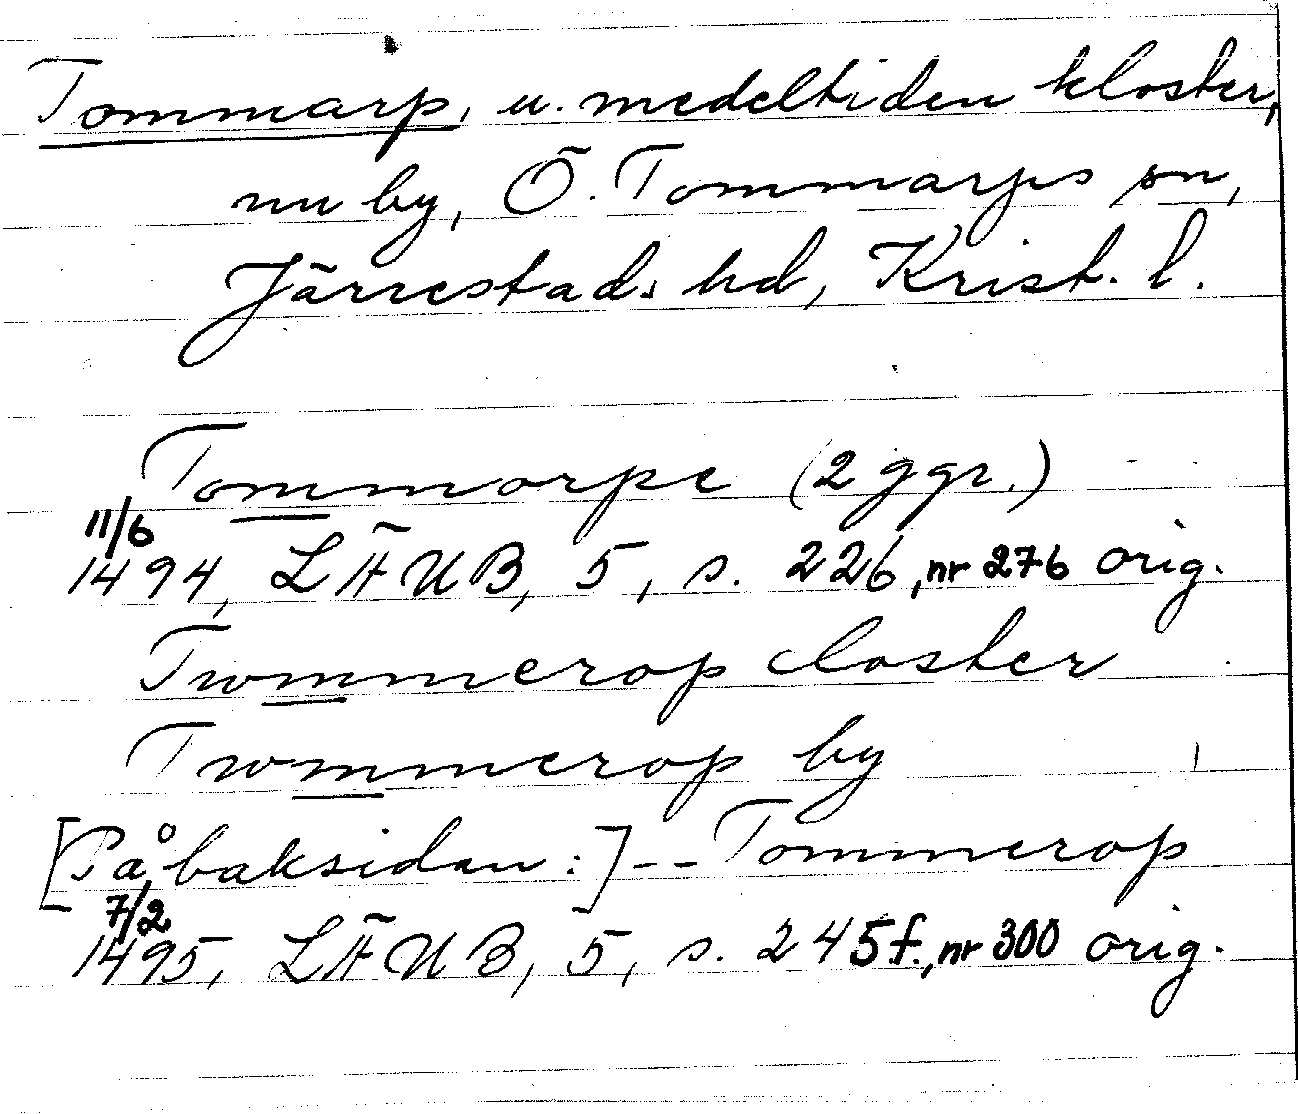 Tommarp, u. medeltiden kloster,
nu by, Ö. Tommarps sn,
Järrestads hd, Krist. l.
Tommorpe (2 ggr.)
11/6
1494, LÄUB, 5, s. 226, nr 276 orig.
Twmmerop closter
Twmmerop by
[På baksidan:] -- Tommerop
7/2
1495, LÄUB, 5, s. 245f., nr 300 orig.